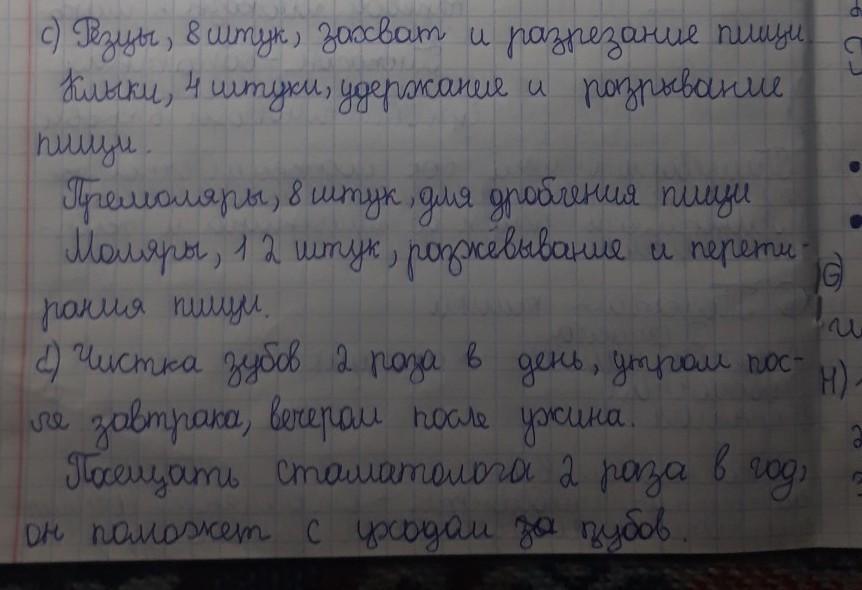 с) Резцы, 8 штук, захват и разрезание пищи
Клыки, 4 штуки, удержание и розрывание
пищи.
Премоляры, 8 штук, для дробления пищи
Моляры, 12 штук, розжёвывание и перети-
рания пищи.
d) Чистка зубов 2 раза в день, утром пос-
ле завтрака, вечером после ужина.
Посещать стоматолога 2 раза в год,
он поможет с уходом за зубов.
Н)